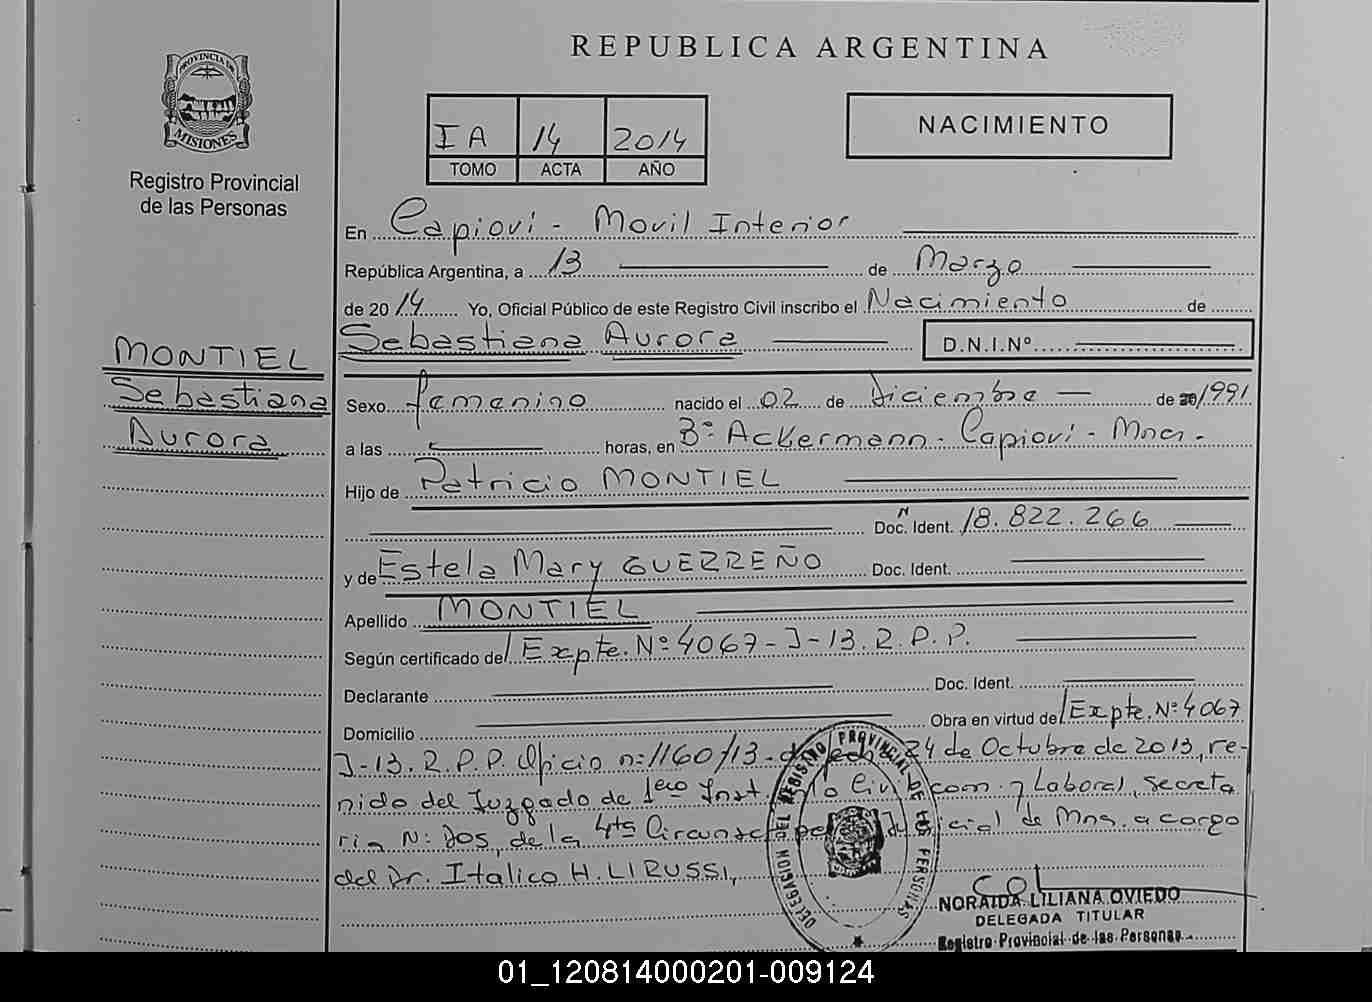 REPUBLICA ARGENTINA
PROVINCIA DE
MISIONES
Registro Provincial
de las Personas
IA 14 2014
TOMO ACTA AÑO
NACIMIENTO
En Capioví - Movil Interior
República Argentina, a 13 de Marzo
de 2014 Yo, Oficial Público de este Registro Civil inscribo el Nacimiento de
Sebastiana Aurora D.N.I.Nº
MONTIEL
Sebastiana
Aurora
Sexo femenino nacido el 02 de Diciembre de 20 1991
a las horas, en Bº Ackermann - Capioví - Mnes.
Hijo de Patricio MONTIEL
Doc. Ident. 18.822.266
y de Estela Mary GUERREÑO Doc. Ident.
Apellido MONTIEL
Según certificado del Expte. Nº 4067-J-13. R.P.P.
Declarante Doc. Ident.
Domicilio Obra en virtud del Expte. Nº 4067
J-13. R.P.P. Oficio nº 1160/13 - de fecha 24 de Octubre de 2013, re-
nido del Juzgado de 1ero Inst. de lo Civ. com. y Laboral, Secreta
ria Nº Dos, de la 4ta Circunscripción Judicial de Mns. a cargo
del Dr. Italico H. LIRUSSI,
DELEGACION DEL REGISTRO PROVINCIAL DE LAS PERSONAS
NORAIDA LILIANA OVIEDO
DELEGADA TITULAR
Registro Provincial de las Personas
01_120814000201-009124